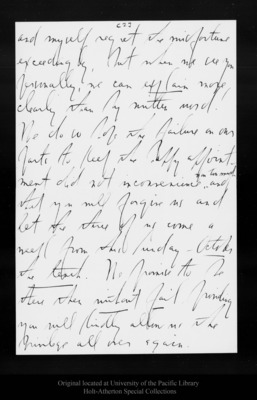 633
and myself regret the misfortune
exceedingly, but when we see you
personally, we can explain more
clearly than by written word.
We do so hope the failure on our
parts to keep the happy appoint-
ment did not inconvenience you too much, and
that you will forgive us and
let the three of us come a
week from this Sunday - October
the tenth. We promise to be
there then without fail providing
you will kindly allow us the
privilege all over again.
Original located at University of the Pacific Library
Holt-Atherton Special Collections